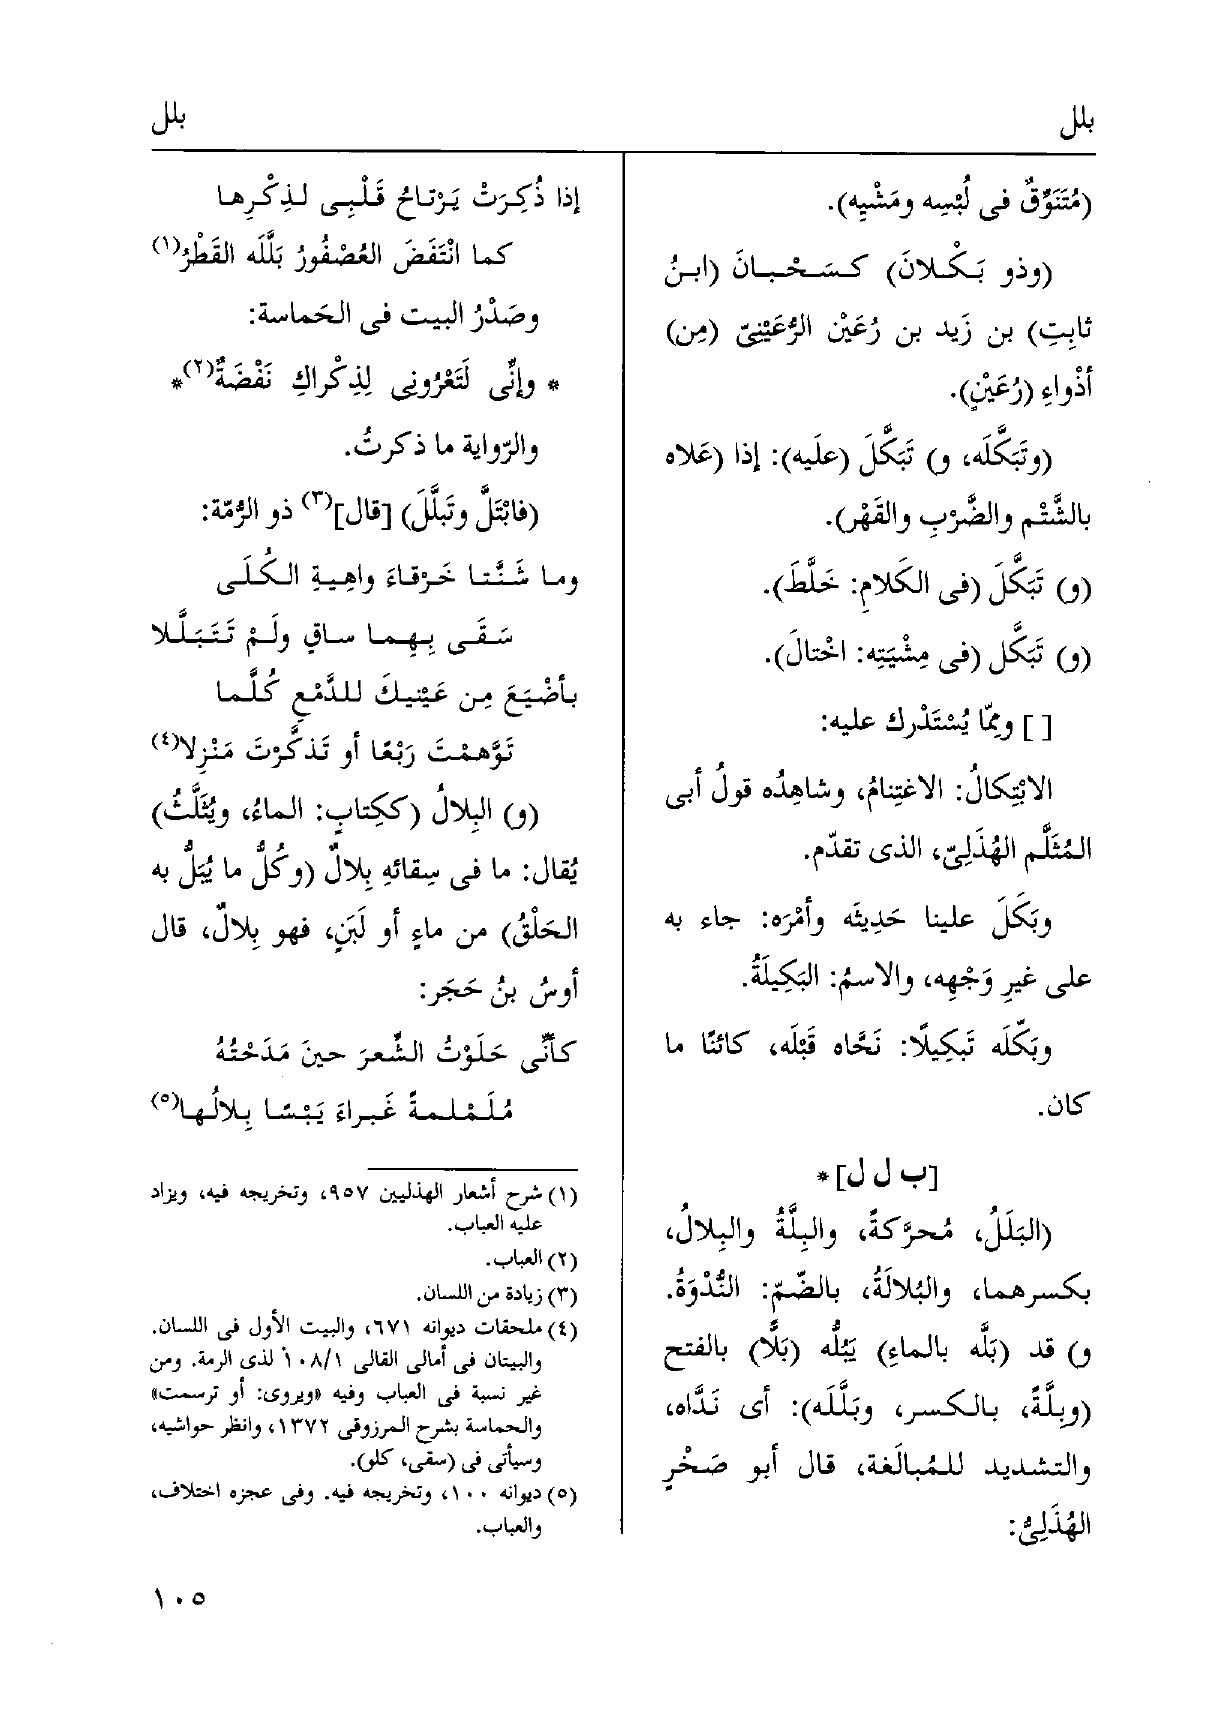 بلل
بلل
(مُتَنَوِّقٌ فى لُبْسِه ومَشْيِه).
(وذو بَكْلانَ) كَسَحْبانَ (ابنُ
ثابِتِ) بن زَيد بن رُعَيْن الرُّعَيْنِىّ (مِن)
أذْواءِ (رُعَيْنٍ).
(وتَبَكَّلَه، و) تَبَكَّلَ (علَيه): إذا (عَلاه
بالشَّتْم والضَّرْبِ والقَهْر).
(و) تَبَكَّلَ (فى الكَلامِ: خَلَّطَ).
(و) تَبَكَّل (فى مِشْيَتِه: اخْتالَ).
[ ] وممّا يُسْتَدْرك عليه:
الابْتِكالُ: الاغْتِنامُ، وشاهِدُه قولُ أبى
المُثَلَّم الهُذَلِىّ، الذى تقدّم.
وبَكَلَ علينا حَدِيثَه وأمْرَه: جاء به
على غيرِ وَجْهِه، والاسمُ: البَكِيلَةُ.
وبَكّلَه تَبكِيلًا: نَحَّاه قَبْلَه، كائنًا ما
كان.
[ب ل ل] *
(البَلَلُ، مُحرَّكةً، والبِلَّةُ والبِلالُ،
بكسرهما، والبُلالَةُ، بالضّمّ: النُّدْوَةُ.
و) قد (بَلَّه بالماءِ) يَبُلّه (بَلًّا) بالفتح
(وبِلَّةً، بالكسر، وبَلَّلَه): أى نَدَّاه،
والتشديد للمُبالَغة، قال أبو صَخْرٍ
الهُذَلِىُّ:
إذا ذُكِرَتْ يَرْتاحُ قَلْبِى لذِكْرِها
كما انْتَفَضَ العُصْفُورُ بَلَّلَه القَطْرُ(١)
وصَدْرُ البيت فى الحَماسة:
* وإنِّى لَتَعْرُونِى لِذِكْراكِ نَفْضَةٌ(٢)*
والرّواية ما ذكرتُ.
(فابْتَلَّ وتَبَلَّلَ) [قال](٣) ذو الرُّمّة:
وما شَنَّتا خَرْقاءَ واهِيةِ الكُلَى
سَقَى بِهِما ساقٍ ولَمْ تَتَبَلَّلا
بأضْيَعَ مِن عَيْنِيكَ للدَّمْعِ كُلَّما
تَوَّهمْتَ رَبْعًا أو تَذكَّرْتَ مَنْزِلا(٤)
(و) البِلالُ (ككِتابٍ: الماءُ، ويُثَلَّثُ)
يُقال: ما فى سِقائهِ بِلالٌ (وكُلُّ ما يُبَلُّ به
الحَلْقُ) من ماءٍ أو لَبَنٍ، فهو بِلالٌ، قال
أوسُ بنُ حَجَر:
كأنِّى حَلَوْتُ الشِّعرَ حينَ مَدَحْتُهُ
مُلَمْلمةً غَبراءَ يَبْسًا بِلالُها(٥)
(١) شرح أشعار الهذليين ٩٥٧، وتخريجه فيه، ويزاد
عليه العباب.
(٢) العباب.
(٣) زيادة من اللسان.
(٤) ملحقات ديوانه ٦٧١، والبيت الأول فى اللسان.
والبيتان فى أمالى القالى ١٠٨/١ لذى الرمة. ومن
غير نسبة فى العباب وفيه «ويروى: أو ترسمت»
والحماسة بشرح المرزوقى ١٣٧٢، وانظر حواشيه،
وسيأتى فى (سقى، كلو).
(٥) ديوانه ١٠٠، وتخريجه فيه. وفى عجزه اختلاف،
والعباب.
١٠٥